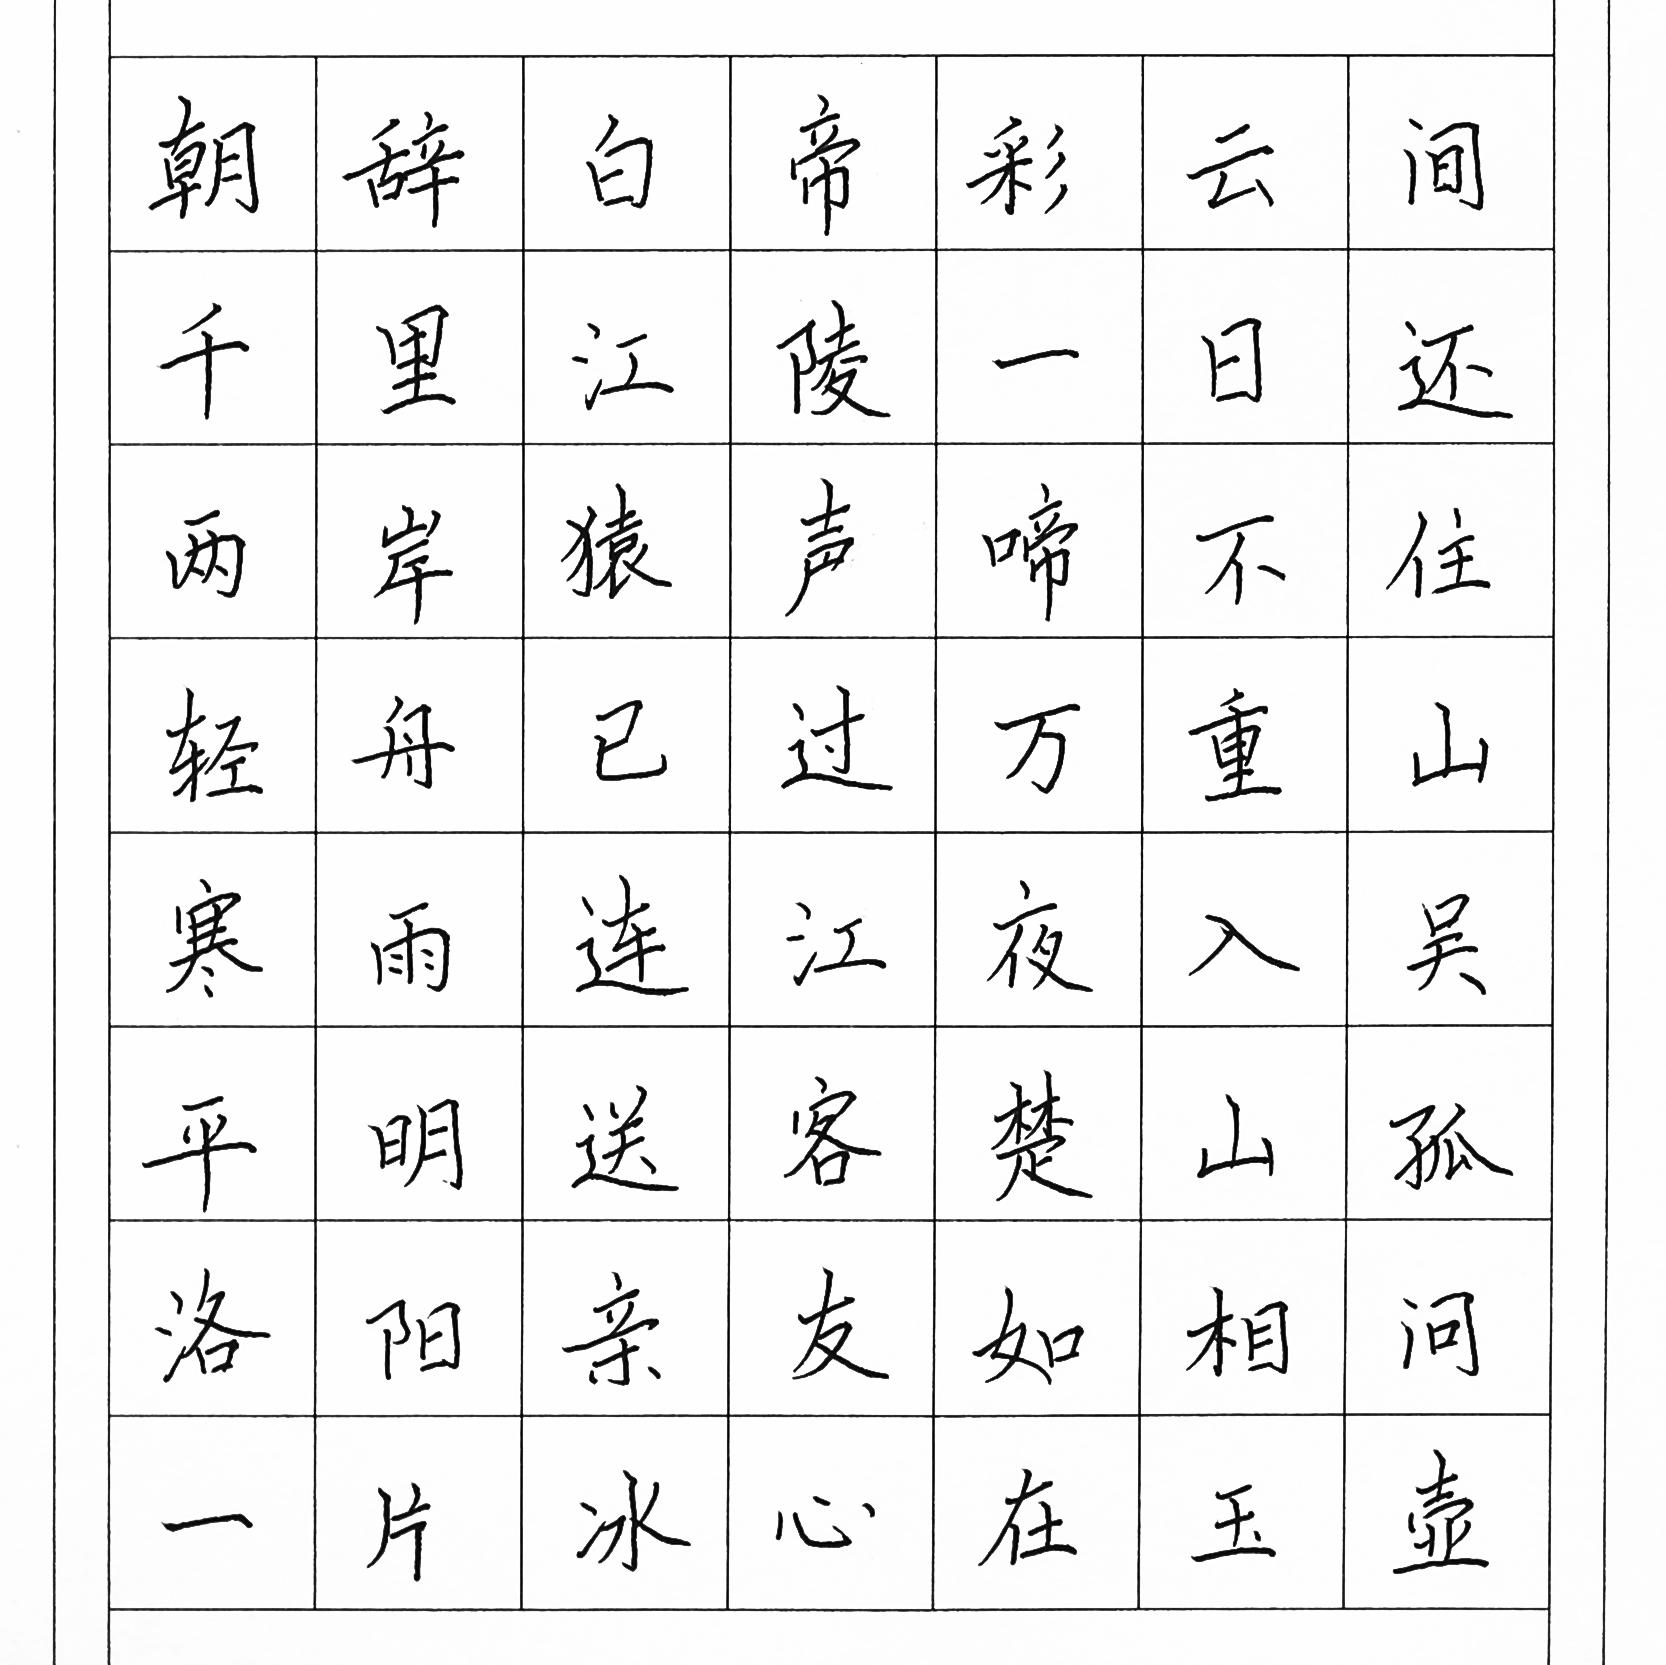 朝辞白帝彩云间
千里江陵一日还
两岸猿声啼不住
轻舟已过万重山
寒雨连江夜入吴
平明送客楚山孤
洛阳亲友如相问
一片冰心在玉壶